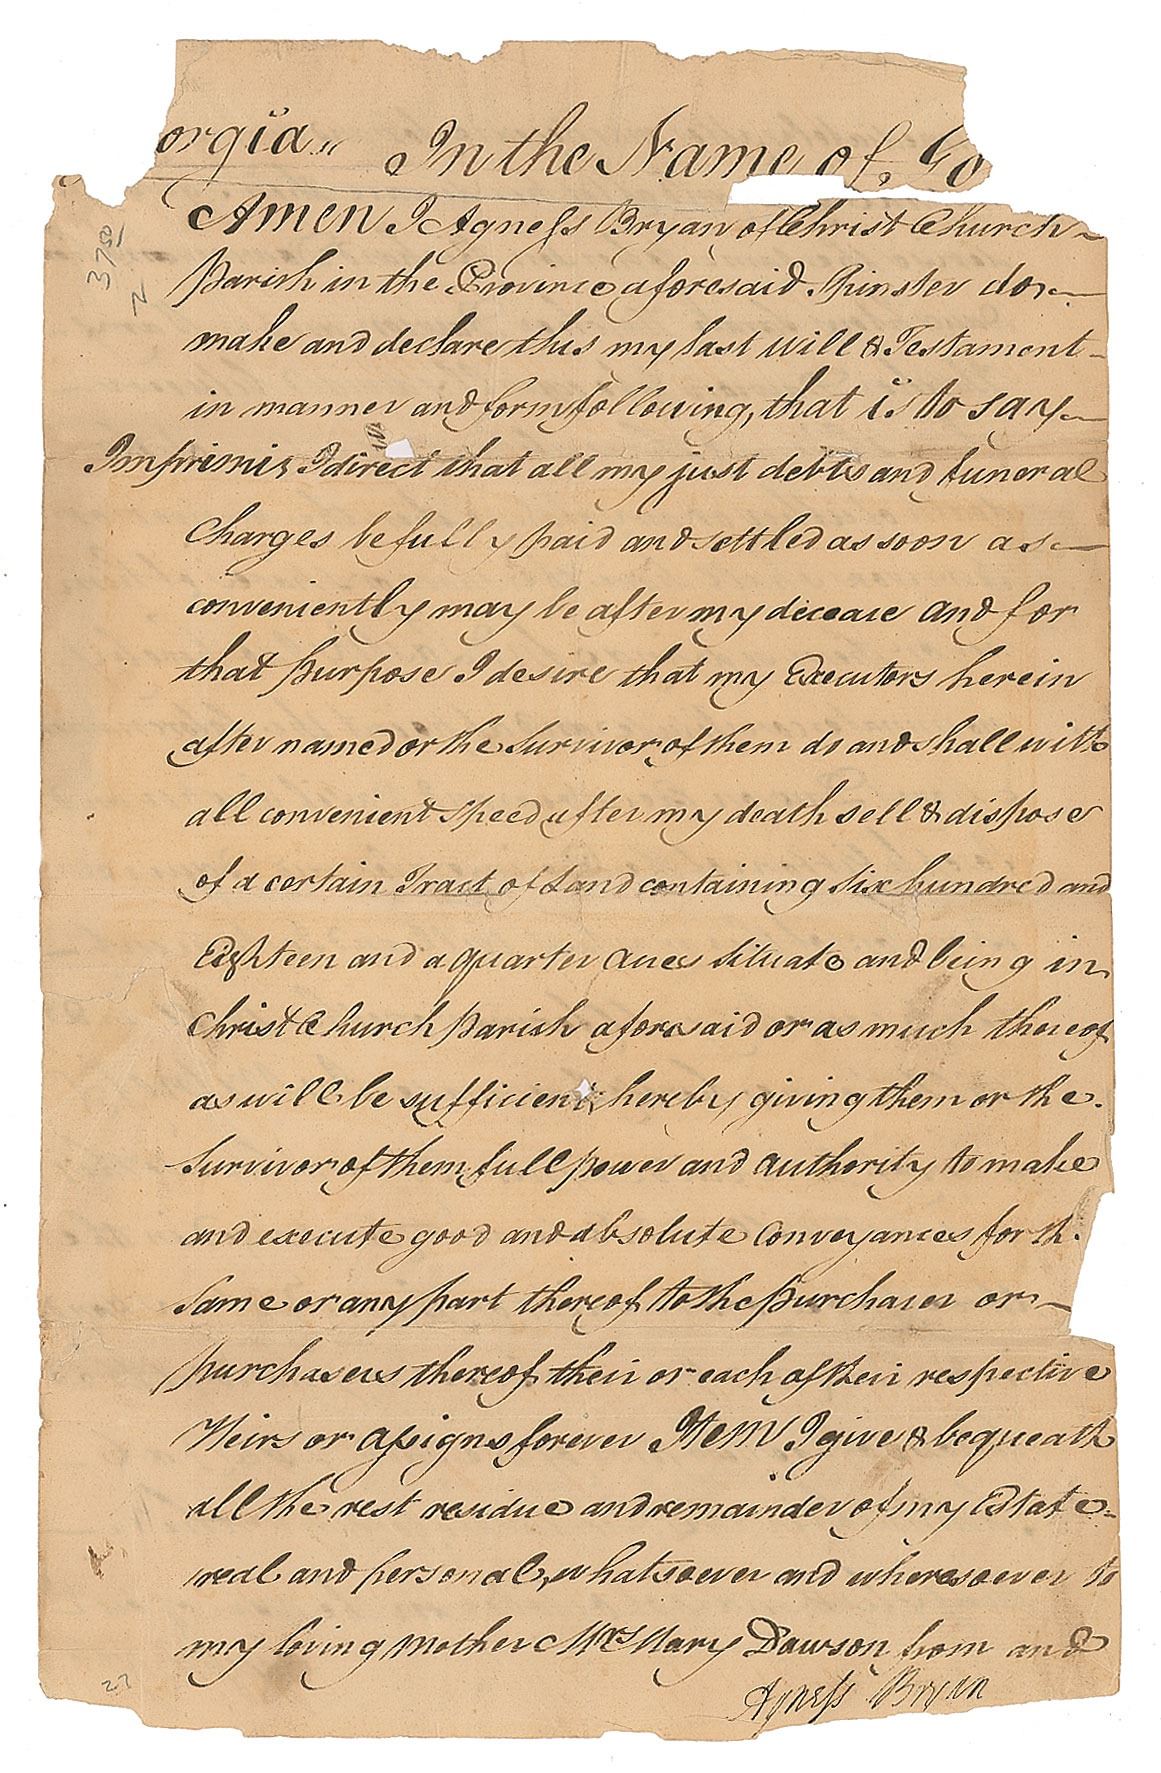 orgia„ In the Name of Go
Amen I Agness Bryan of Christ Church
Parish in the Province aforesaid Spinster do
make and declare this my last Will & Testament
in manner and form following, that is to say
Imprimis I direct that all my just debts and funeral
Charges be fully paid and settled as soon as
conveniently may be after my decease and for
that purpose I desire that my Executors herein
after named or the Survivor of them do and shall with
all convenient Speed after my death sell & dispose
of a certain Tract of Land containing Six hundred and
Eighteen and a quarter Acres Situate and being in
Christ Church Parish aforesaid or as much thereof
as will be sufficient, hereby giving them or the
Survivor of them full power and authority to make
and execute good and absolute Conveyances for th
Same or any part thereof to the purchaser or
purchasers thereof their or each of their respective
Heirs or assigns forever Item I give & bequeath
all the rest residue and remainder of my Estate
real and personal, whatsoever and wheresoever to
my loving mother Mrs Mary Dawson from and
Agness Bryan
27